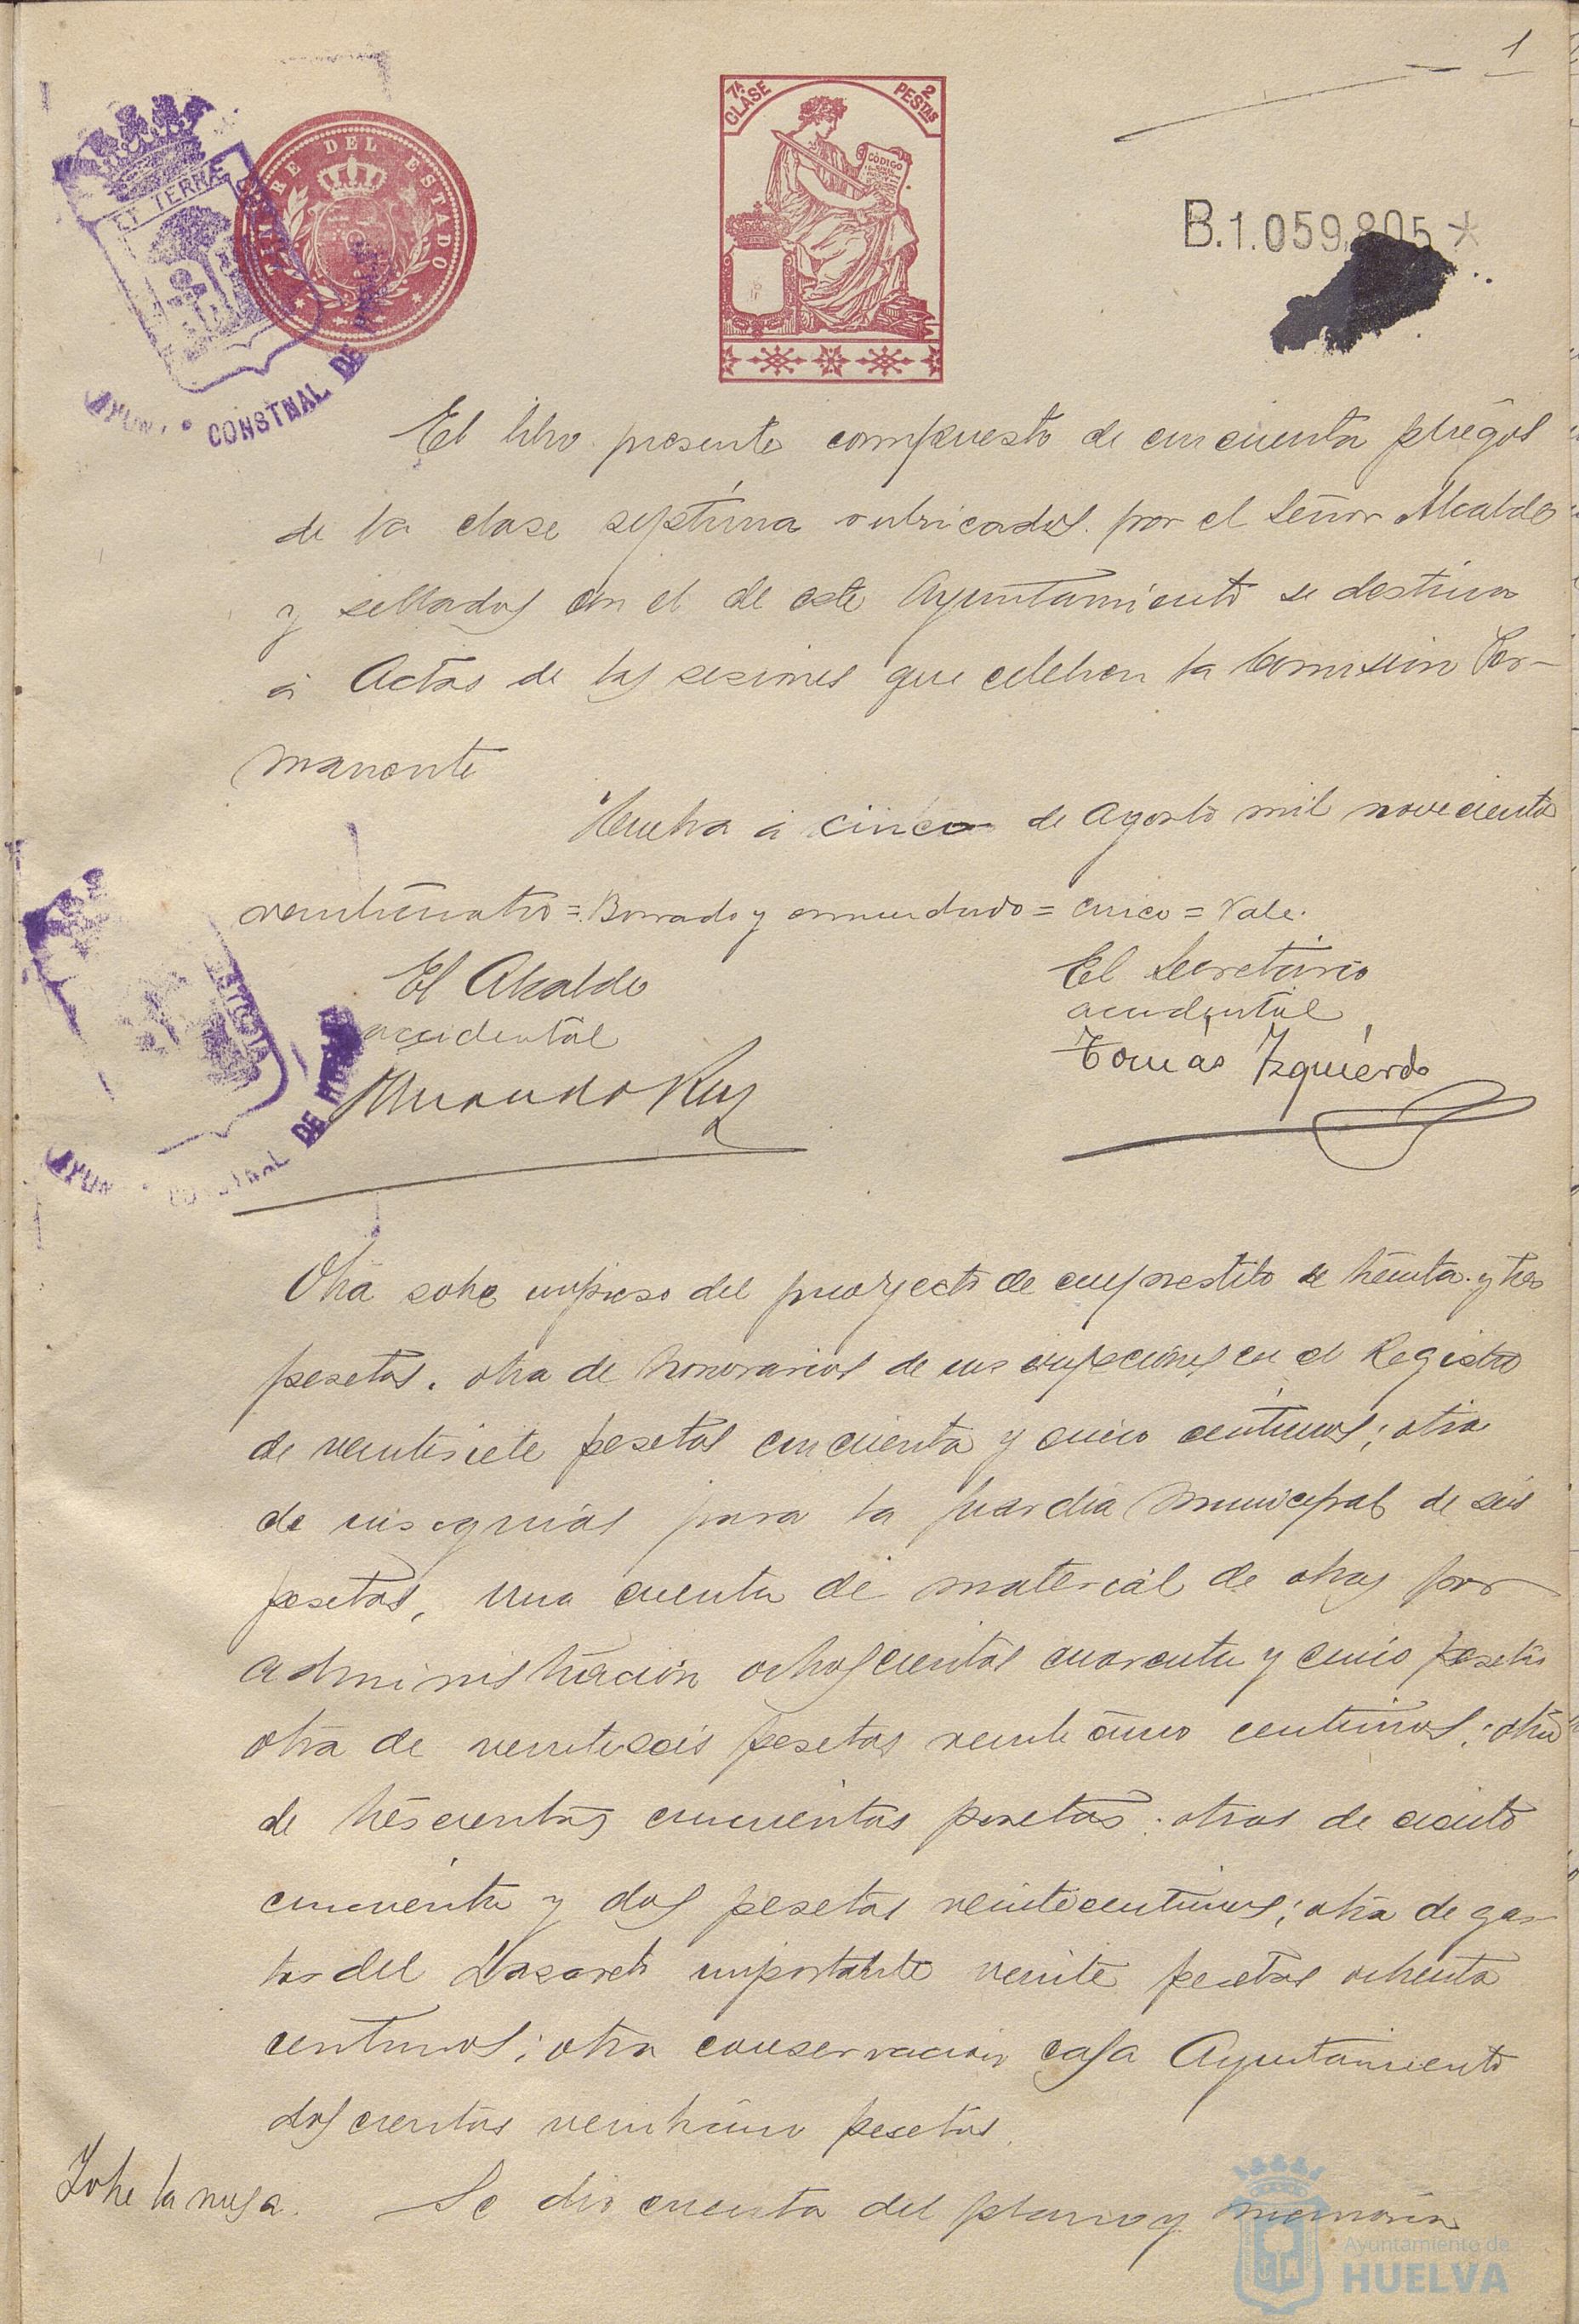 1
7ª CLASE
2 PESTAS
CÓDIGO
TIMBRE DEL ESTADO
ET TERRÆ
B.1.059,805 *
AYUN. CONSTNAL DE
El libro presente compuesto de cincuenta pliegos
de la clase septima rubricados por el Señor Alcalde
y sellados con el de este Ayuntamiento se destina
á Actas de las sesiones que celebren la Comision Per-
manente
Huelva á cinco de Agosto mil novecientos
veinticuatro = Borrado y enmendado = cinco = Vale.
El Alcalde
accidental
El Secretario
accidental
Tomás Izquierdo
CUSTODIA
AYUN CONSTNAL DE HUELVA
Otra sobre impreso del proyecto de emprestito de treinta y tres
pesetas. otra de honorarios de inscripciones en el Registro
de veintisiete pesetas cincuenta y cinco centimos; otra
de insignias para la guardia Municipal de seis
pesetas, una cuenta de material de obras por
administración ochocientas cuarenta y cinco pesetas
otra de veintiseis pesetas veinte cinco centimos; otra
de trescientas cincuentas pesetas. otras de ciento
cincuenta y dos pesetas veinte centimos; otra de gas-
tos del Lazareto importante veinte pesetas ochenta
centimos; otra conservacion casa Ayuntamiento
doscientas veinticinco pesetas.
Sobre la mesa. Se dio cuenta del plano y memoria
Ayuntamiento de
HUELVA